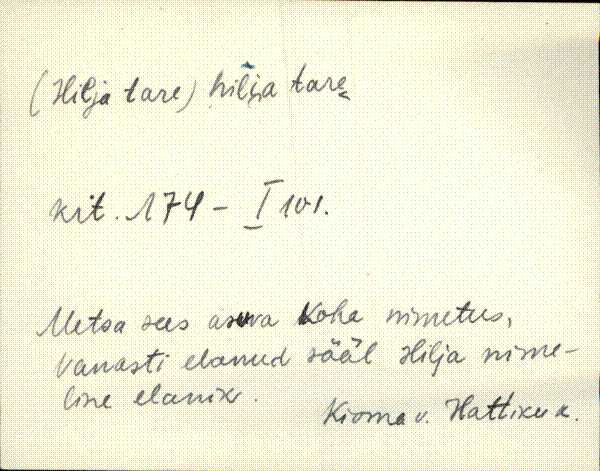 (Hilja tare) hilja tare
kit. 174 - I 101.
Metsa sees asuva koha nimetus,
Vanasti elanud sääl Hilja nime-
line elanik.
Kioma v. Hattiku k.